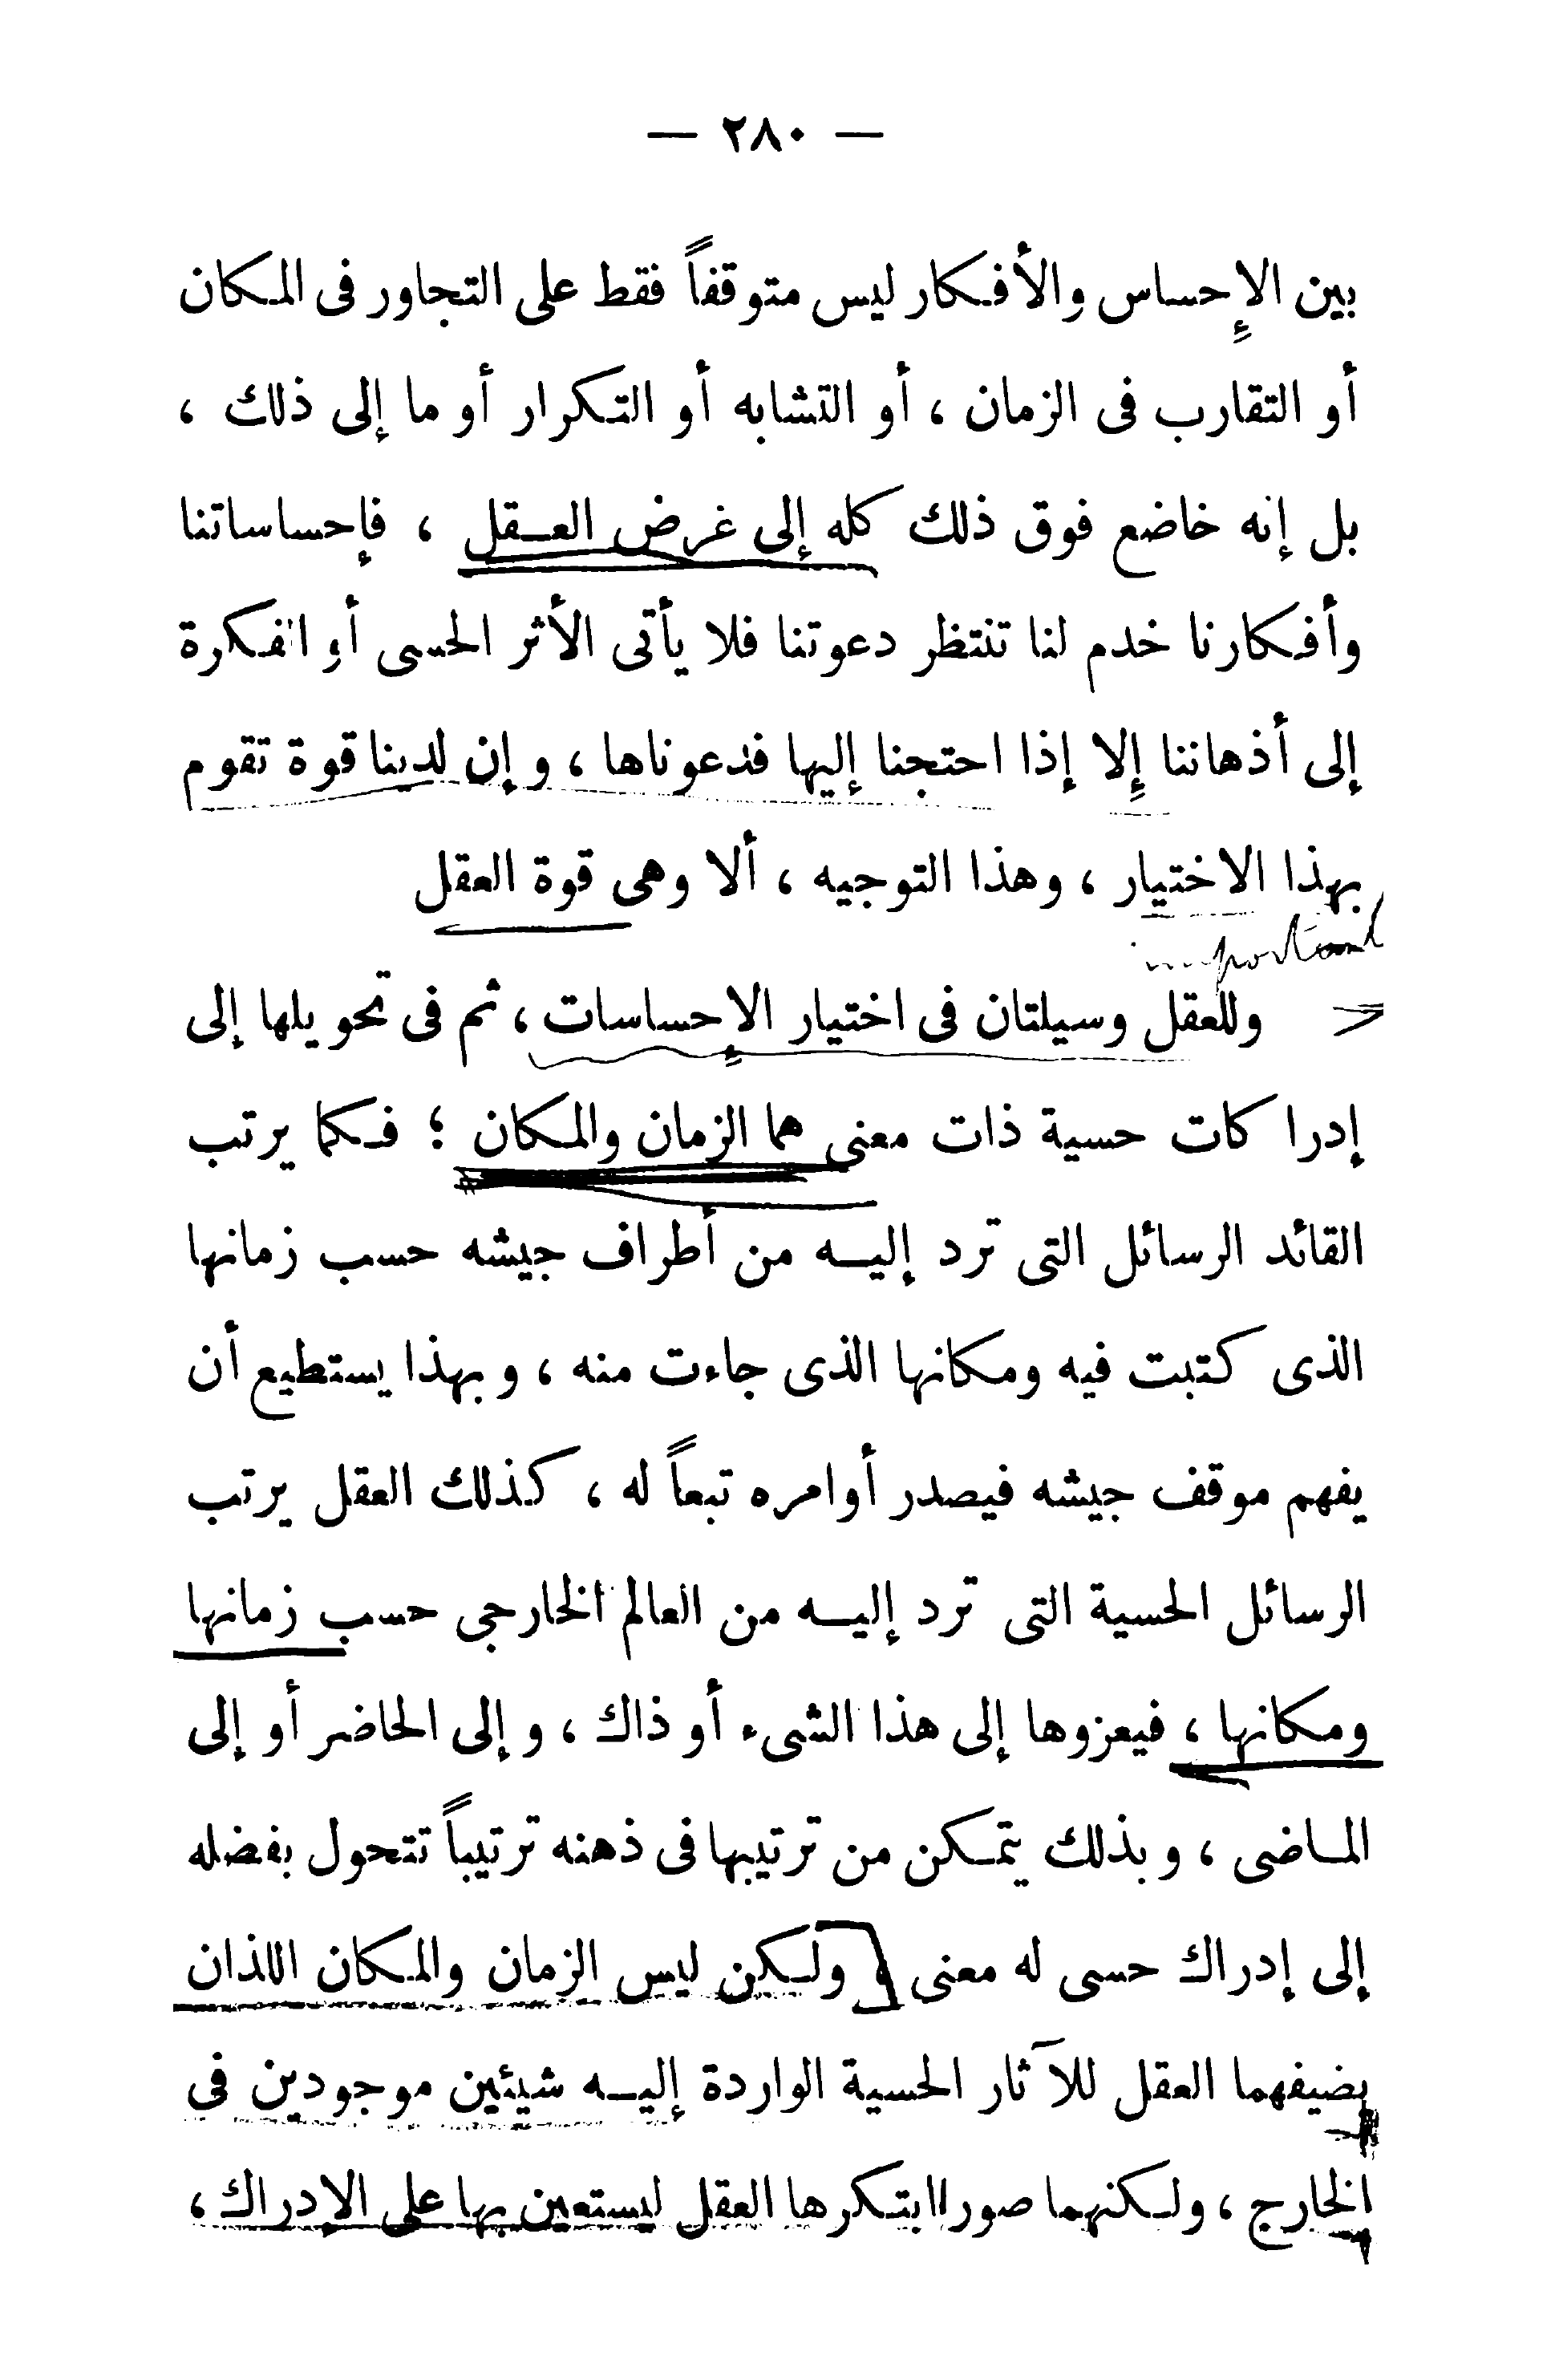 — ٢٨٠ —
بين الإحساس والأفكار ليس متوقفاً فقط على التجاور فى المكان
أو التقارب فى الزمان ، أو التشابه أو التكرار أو ما إلى ذلك ،
بل إنه خاضع فوق ذلك كله إلى غرض العقل ، فإحساساتنا
وأفكارنا خدم لنا تنتظر دعوتنا فلا يأتى الأثر الحسى أو الفكرة
إلى أذهاننا إلا إذا احتجنا إليها فدعوناها ، وإن لدينا قوة تقوم
بهذا الاختيار ، وهذا التوجيه ، ألا وهى قوة العقل
important
وللعقل وسيلتان فى اختيار الإحساسات ، ثم فى تحويلها إلى
إدراكات حسية ذات معنى هما الزمان والمكان ؛ فكما يرتب
القائد الرسائل التى ترد إليه من أطراف جيشه حسب زمانها
الذى كتبت فيه ومكانها الذى جاءت منه ، وبهذا يستطيع أن
يفهم موقف جيشه فيصدر أوامره تبعاً له ، كذلك العقل يرتب
الرسائل الحسية التى ترد إليه من العالم الخارجى حسب زمانها
ومكانها ، فيعزوها إلى هذا الشىء أو ذاك ، وإلى الحاضر أو إلى
الماضى ، وبذلك يتمكن من ترتيبها فى ذهنه ترتيباً تتحول بفضله
إلى إدراك حسى له معنى ولكن ليس الزمان والمكان اللذان
يضيفهما العقل للآثار الحسية الواردة إليه شيئين موجودين فى
الخارج ، ولكنهما صورا ابتكرها العقل ليستعين بها على الإدراك ،